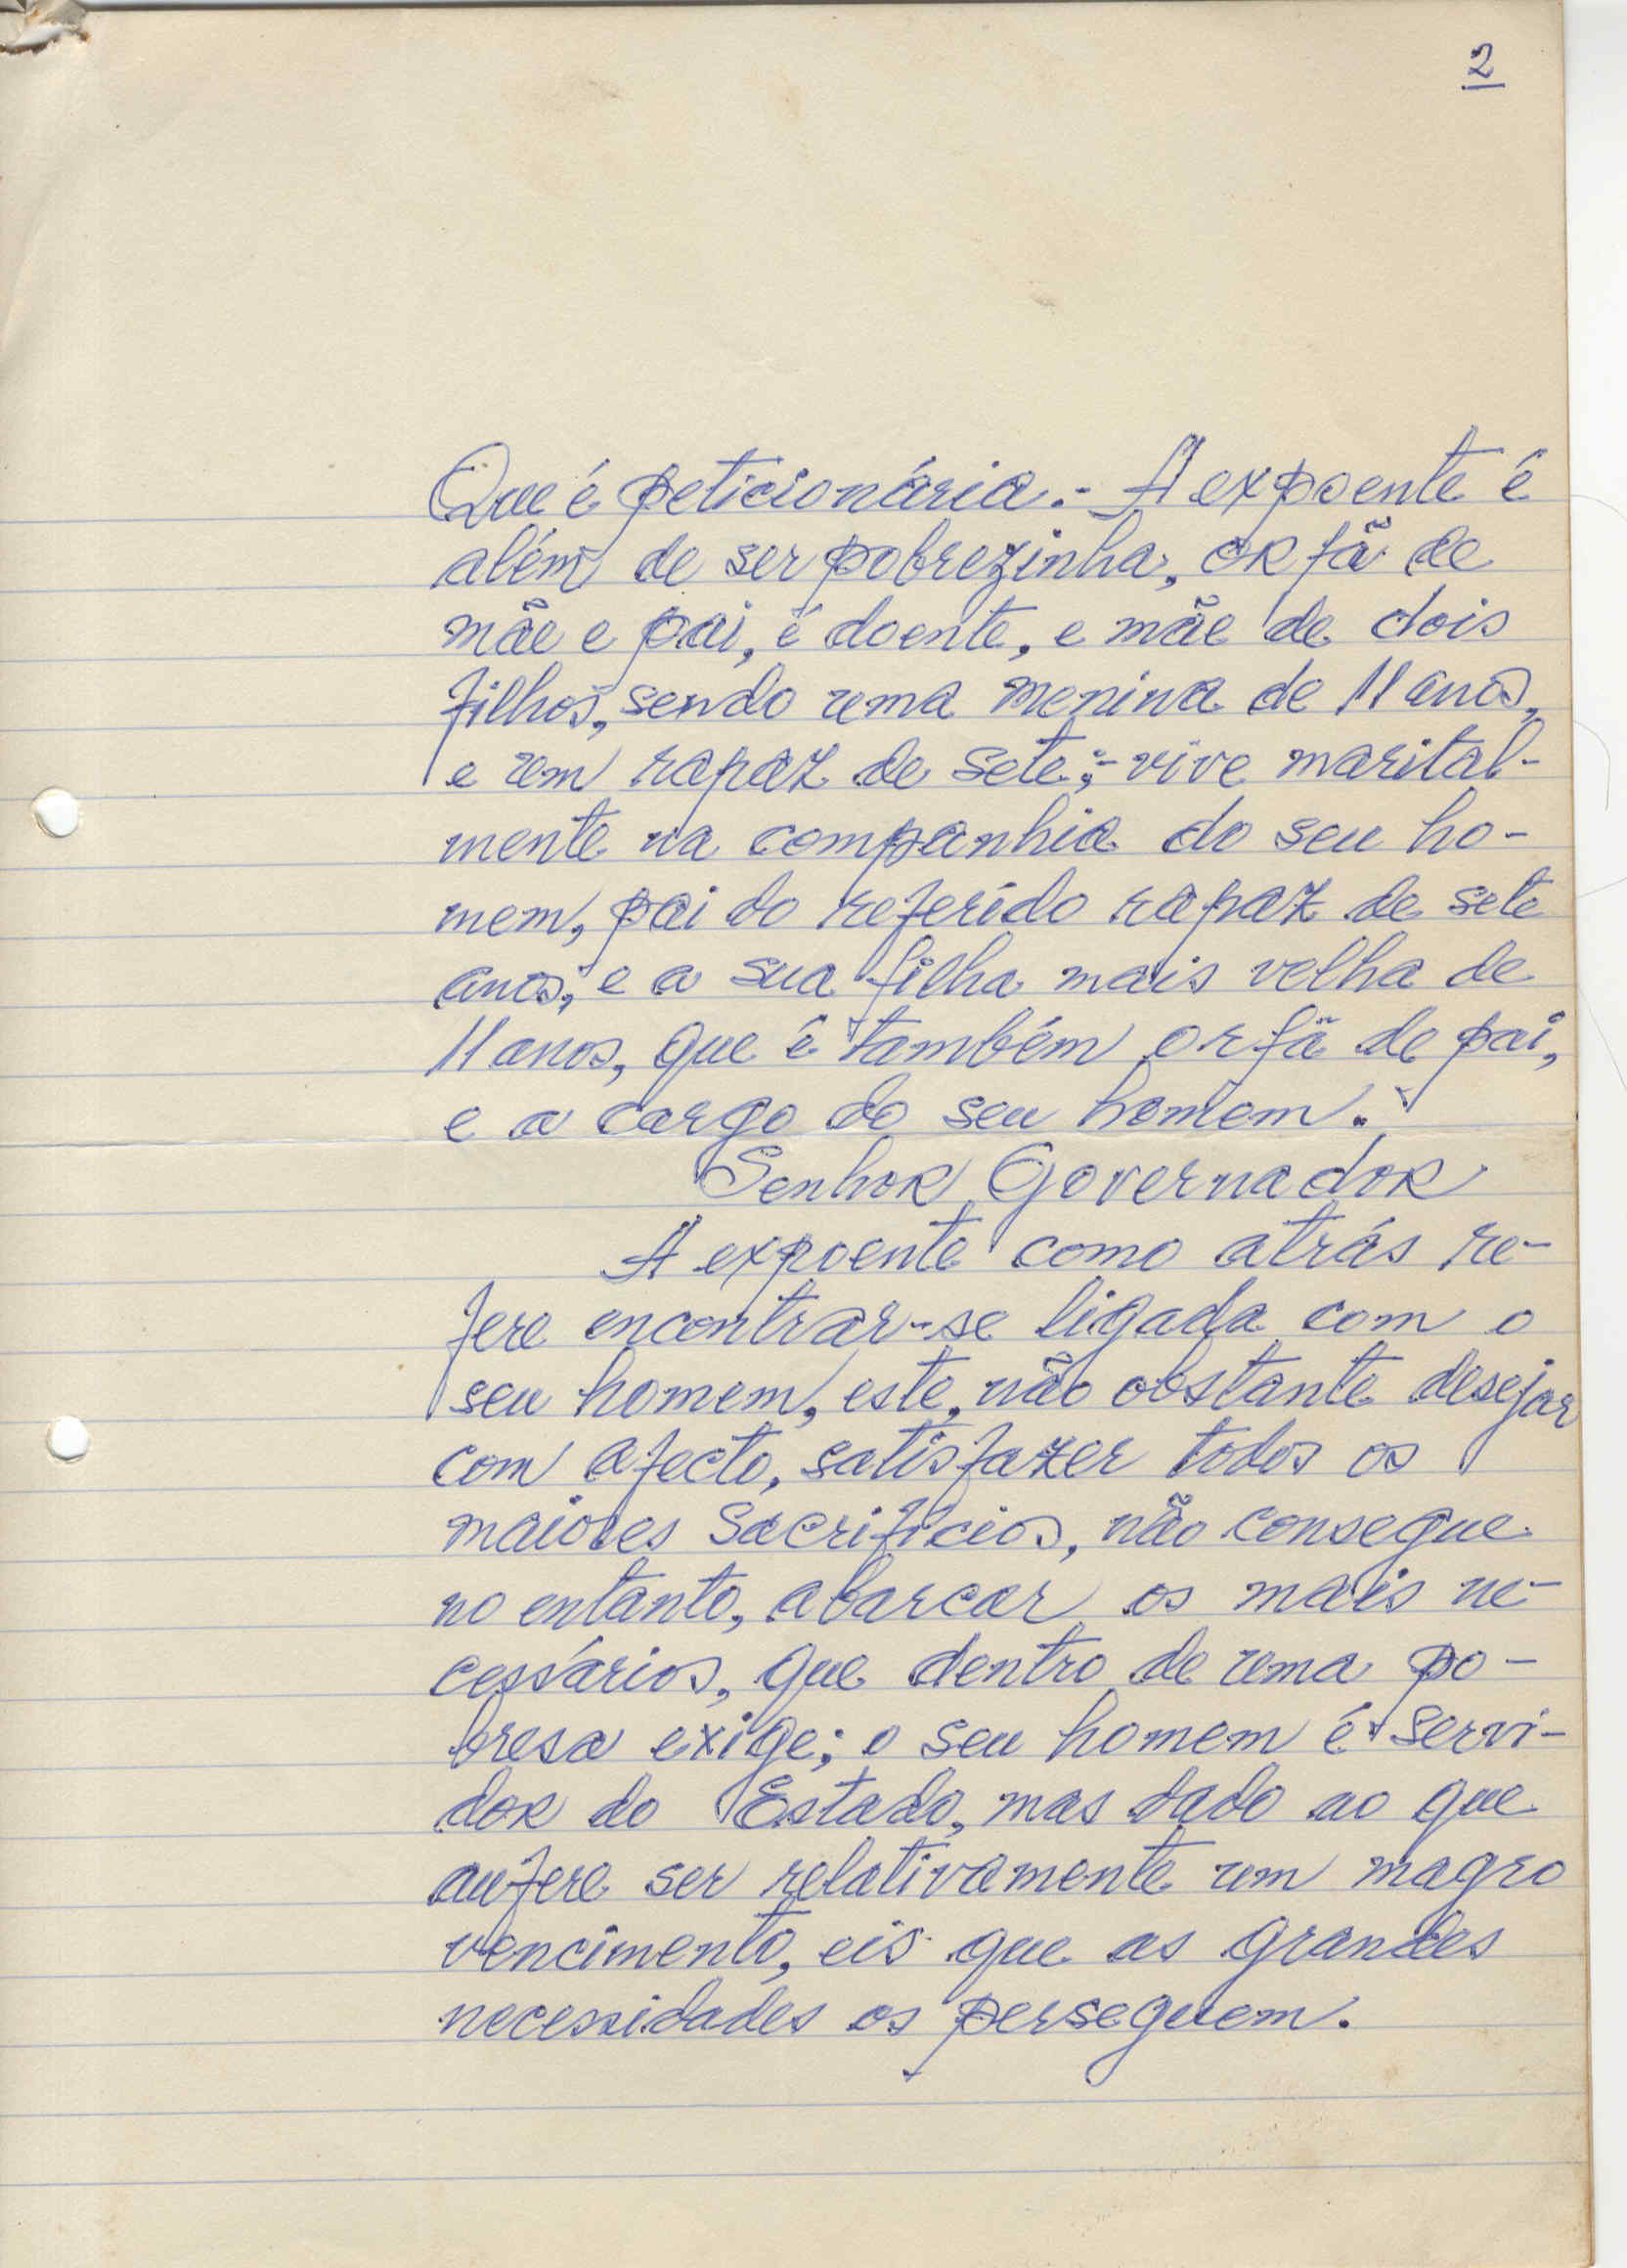 2
Que é peticionária.- A expoente é
além de ser pobrezinha, orfã de
mãe e pai, é doente, e mãe de dois
filhos, sendo uma menina de 11 anos,
e um rapaz de sete;- vive marital-
mente na companhia do seu ho-
mem, pai do referido rapaz de sete
anos; e a sua filha mais velha de
11 anos, que é também orfã de pai,
e a cargo do seu homem.
Senhor Governador
A expoente como atrás re-
fere encontrar-se ligada com o
seu homem, este, não obstante desejar
com afecto, satisfazer todos os
maiores sacrifícios, não consegue
no entanto, abarcar os mais ne-
cessários, que dentro de uma po-
bresa exige; o seu homem é servi-
dor do Estado, mas dado ao que
aufere ser relativamente um magro
vencimento, eis que as grandes
necessidades os perseguem.